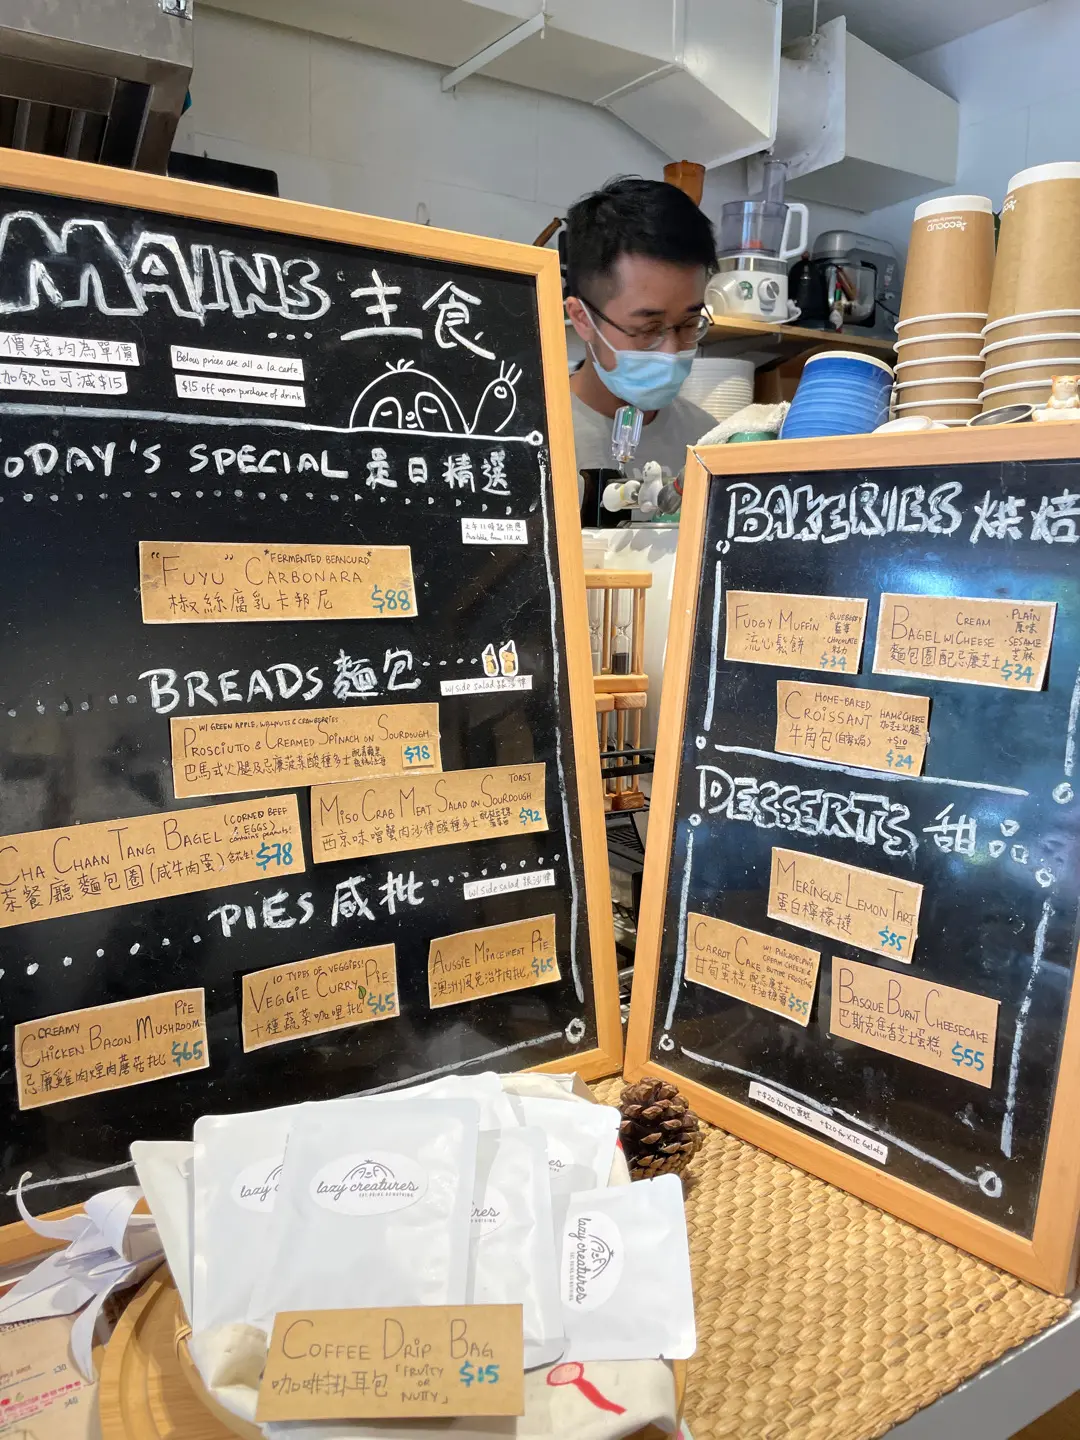 MAINS 主食
價錢均為單價
加飲品可減$15
Below prices are all a la carte.
$15 off upon purchase of drink
TODAY'S SPECIAL 是日精選
上午11時起供應
Available from 11A.M.
"FUYU" CARBONARA
"FERMENTED BEANCURD"
椒絲腐乳卡邦尼
$88
BREADS 麵包
w/ side salad 跟沙律
W/ GREEN APPLE, WALNUTS & CRANBERRIES
PROSCIUTTO & CREAMED SPINACH ON SOURDOUGH
巴馬式火腿及忌廉菠菜酸種多士
$78
MISO CRAB MEAT SALAD ON SOURDOUGH TOAST
西京味噌蟹肉沙律酸種多士
$92
CHA CHAAN TANG BAGEL
(CORNED BEEF & EGGS)
contains peanuts!
茶餐廳麵包圈(咸牛肉蛋)
$78
PIES 咸批
w/ side salad 跟沙律
CREAMY
CHICKEN BACON MUSHROOM PIE
忌廉雞肉煙肉蘑菇批
$65
10 TYPES OF VEGGIES!
VEGGIE CURRY PIE
十種蔬菜咖哩批
$65
AUSSIE MINCEMEAT PIE
澳洲風免治牛肉批
$65
BAKERIES 烘焙
FUDGY MUFFIN
流心鬆餅
BLUEBERRY
藍莓
CHOCOLATE
朱古力
$34
BAGEL W/ CREAM CHEESE
麵包圈配忌廉芝士
PLAIN
原味
SESAME
芝麻
$34
HOME-BAKED
CROISSANT
牛角包(自家焗)
HAM & CHEESE
加芝士火腿
+$10
$24
DESSERTS 甜品
MERINGUE LEMON TART
蛋白檸檬撻
$55
CARROT CAKE
W/ PHILADELPHIA CREAM CHEESE & BUTTER FROSTING
甘荀蛋糕 配忌廉芝士牛油糖霜
$55
BASQUE BURNT CHEESECAKE
巴斯克焦香芝士蛋糕
$55
+$20 for XTC Gelato
ecocup
lazy creatures
EAT.DRINK.DO NOTHING
lazy creatures
EAT.DRINK.DO NOTHING
COFFEE DRIP BAG
咖啡掛耳包
「FRUITY OR NUTTY」
$15